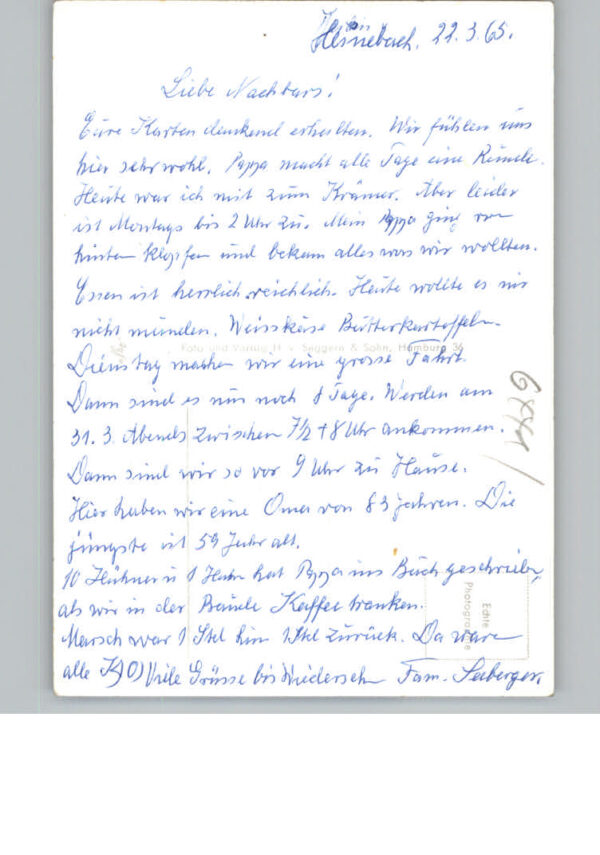 22.3.65.
Liebe Nachbars!
Eure Karten dankend erhalten. Wir fühlen uns
hier sehr wohl. Pappa macht alle Tage eine Runde.
Heute war ich mit zum Krämer. Aber leider
ist Montags bis 2 Uhr zu. Mein Pappa ging von
hinten klopfen und bekam alles was wir wollten.
Essen ist herrlich reichlich. Heute wollte es
nicht munden. Weisskäse Butterkartoffeln.
Foto und Verlag H. v. Seggern & Sohn, Hamburg 36
Dienstag machen wir eine grosse Fahrt.
Dann sind es nur noch 8 Tage. Werden am
31.3. Abends zwischen 7½ + 8 Uhr ankommen.
Dann sind wir so vor 9 Uhr zu Hause.
Hier haben wir eine Oma von 83 Jahren. Die
jüngste ist 59 Jahr alt.
10 Hühner u 1 Hahn hat Pappa ins Buch geschrieben,
als wir in der Baude Kaffee tranken.
Marsch war 1 Std hin 1 Std zurück. Da waren
alle K.O) Viele Grüsse bis Wiedersehn Fam. Seeberger.
Echte